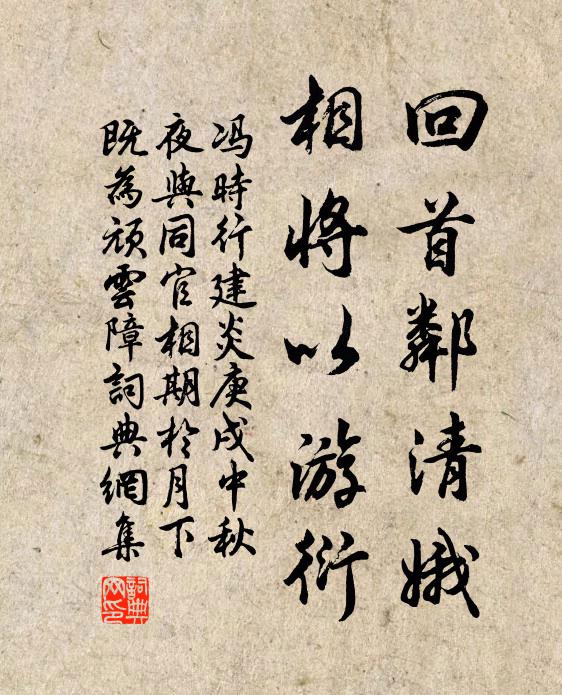 回首鄰清娥
相將以游衍
冯時行建炎庚戌中秋
夜與同官相期於月下
既為頑雲障詞典網集
詞典網印